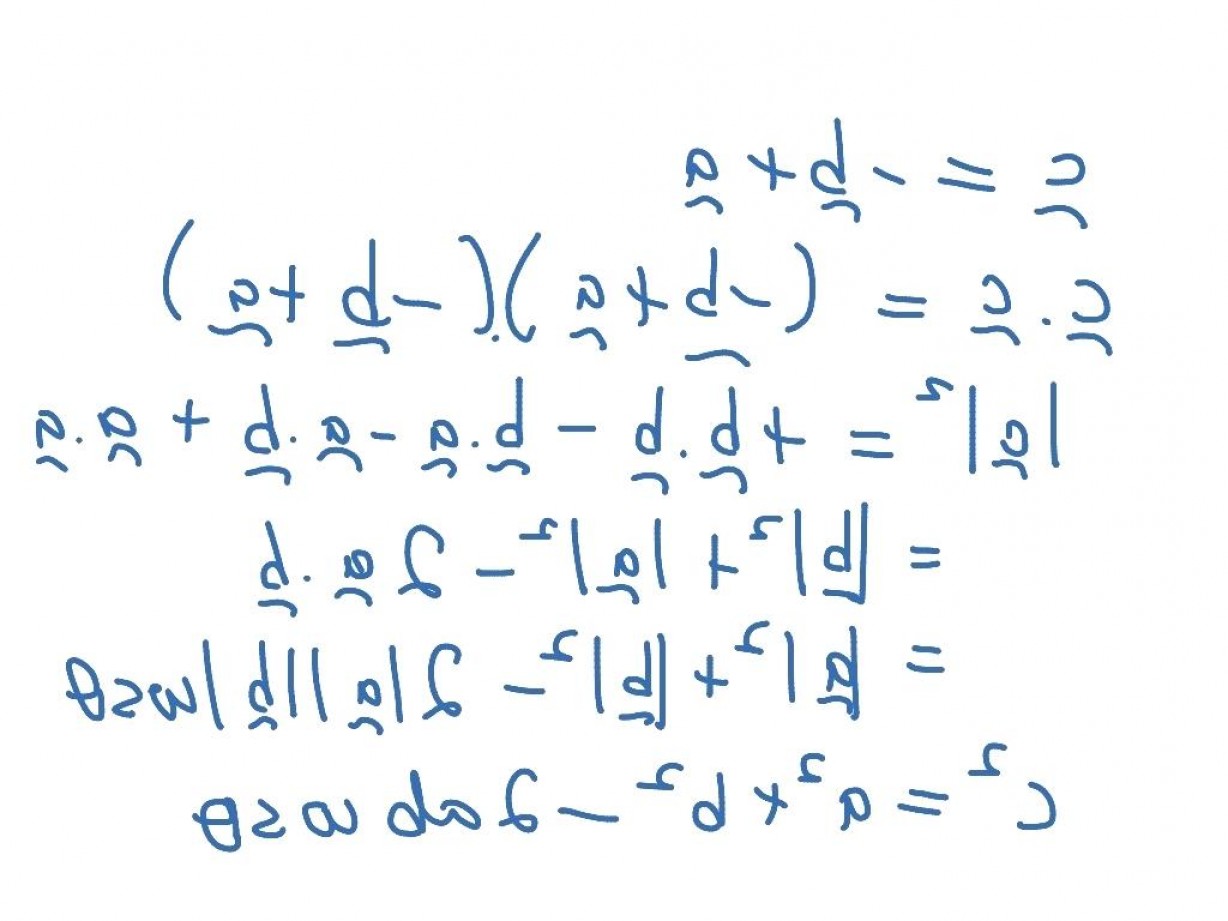 c = -b + a
c . c = (-b + a) . (-b + a)
|c|² = + b . b - b . a - a . b + a . a
= |b|² + |a|² - 2 a . b
= |a|² + |b|² - 2 |a||b| cosθ
c² = a² + b² - 2ab cosθ